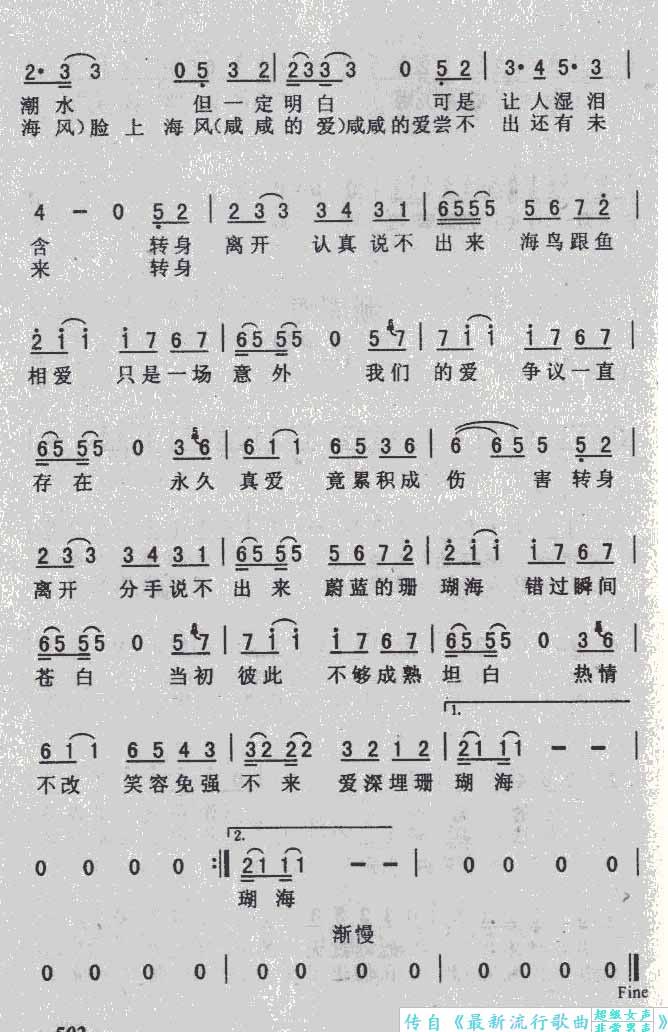 2· 3 3 0 5 3 2 | 2 3 3 3 3 0 5 2 | 3· 4 5· 3 |
潮水 但一定明白 可是 让人湿泪
海风）脸上 海风（咸咸的爱）咸咸的爱尝不 出还有未
4 - 0 5 2 | 2 3 3 3 4 3 1 | 6 5 5 5 5 5 6 7 2 |
含 转身 离开 认真说不 出来 海鸟跟鱼
来 转身
2 1 1 1 7 6 7 | 6 5 5 5 0 5 7 | 7 1 1 1 7 6 7 |
相爱 只是一场 意外 我们 的爱 争议一直
6 5 5 5 0 3 6 | 6 1 1 6 5 3 6 | 6 6 5 5 5 2 |
存在 永久 真爱 竟累积成 伤 害 转身
2 3 3 3 4 3 1 | 6 5 5 5 5 6 7 2 | 2 1 1 1 7 6 7 |
离开 分手说不 出来 蔚蓝的珊 瑚海 错过瞬间
6 5 5 5 0 5 7 | 7 1 1 1 7 6 7 | 6 5 5 5 0 3 6 |
苍白 当初 彼此 不够成熟 坦白 热情
1.
6 1 1 6 5 4 3 | 3 2 2 2 3 2 1 2 | 2 1 1 1 - - |
不改 笑容勉强 不来 爱深埋珊 瑚海
2.
0 0 0 0 :| 2 1 1 1 - - | 0 0 0 0 |
瑚海
渐慢
0 0 0 0 | 0 0 0 0 | 0 0 0 0 ||
Fine
传自《最新流行歌曲 超级女声 非常男声》